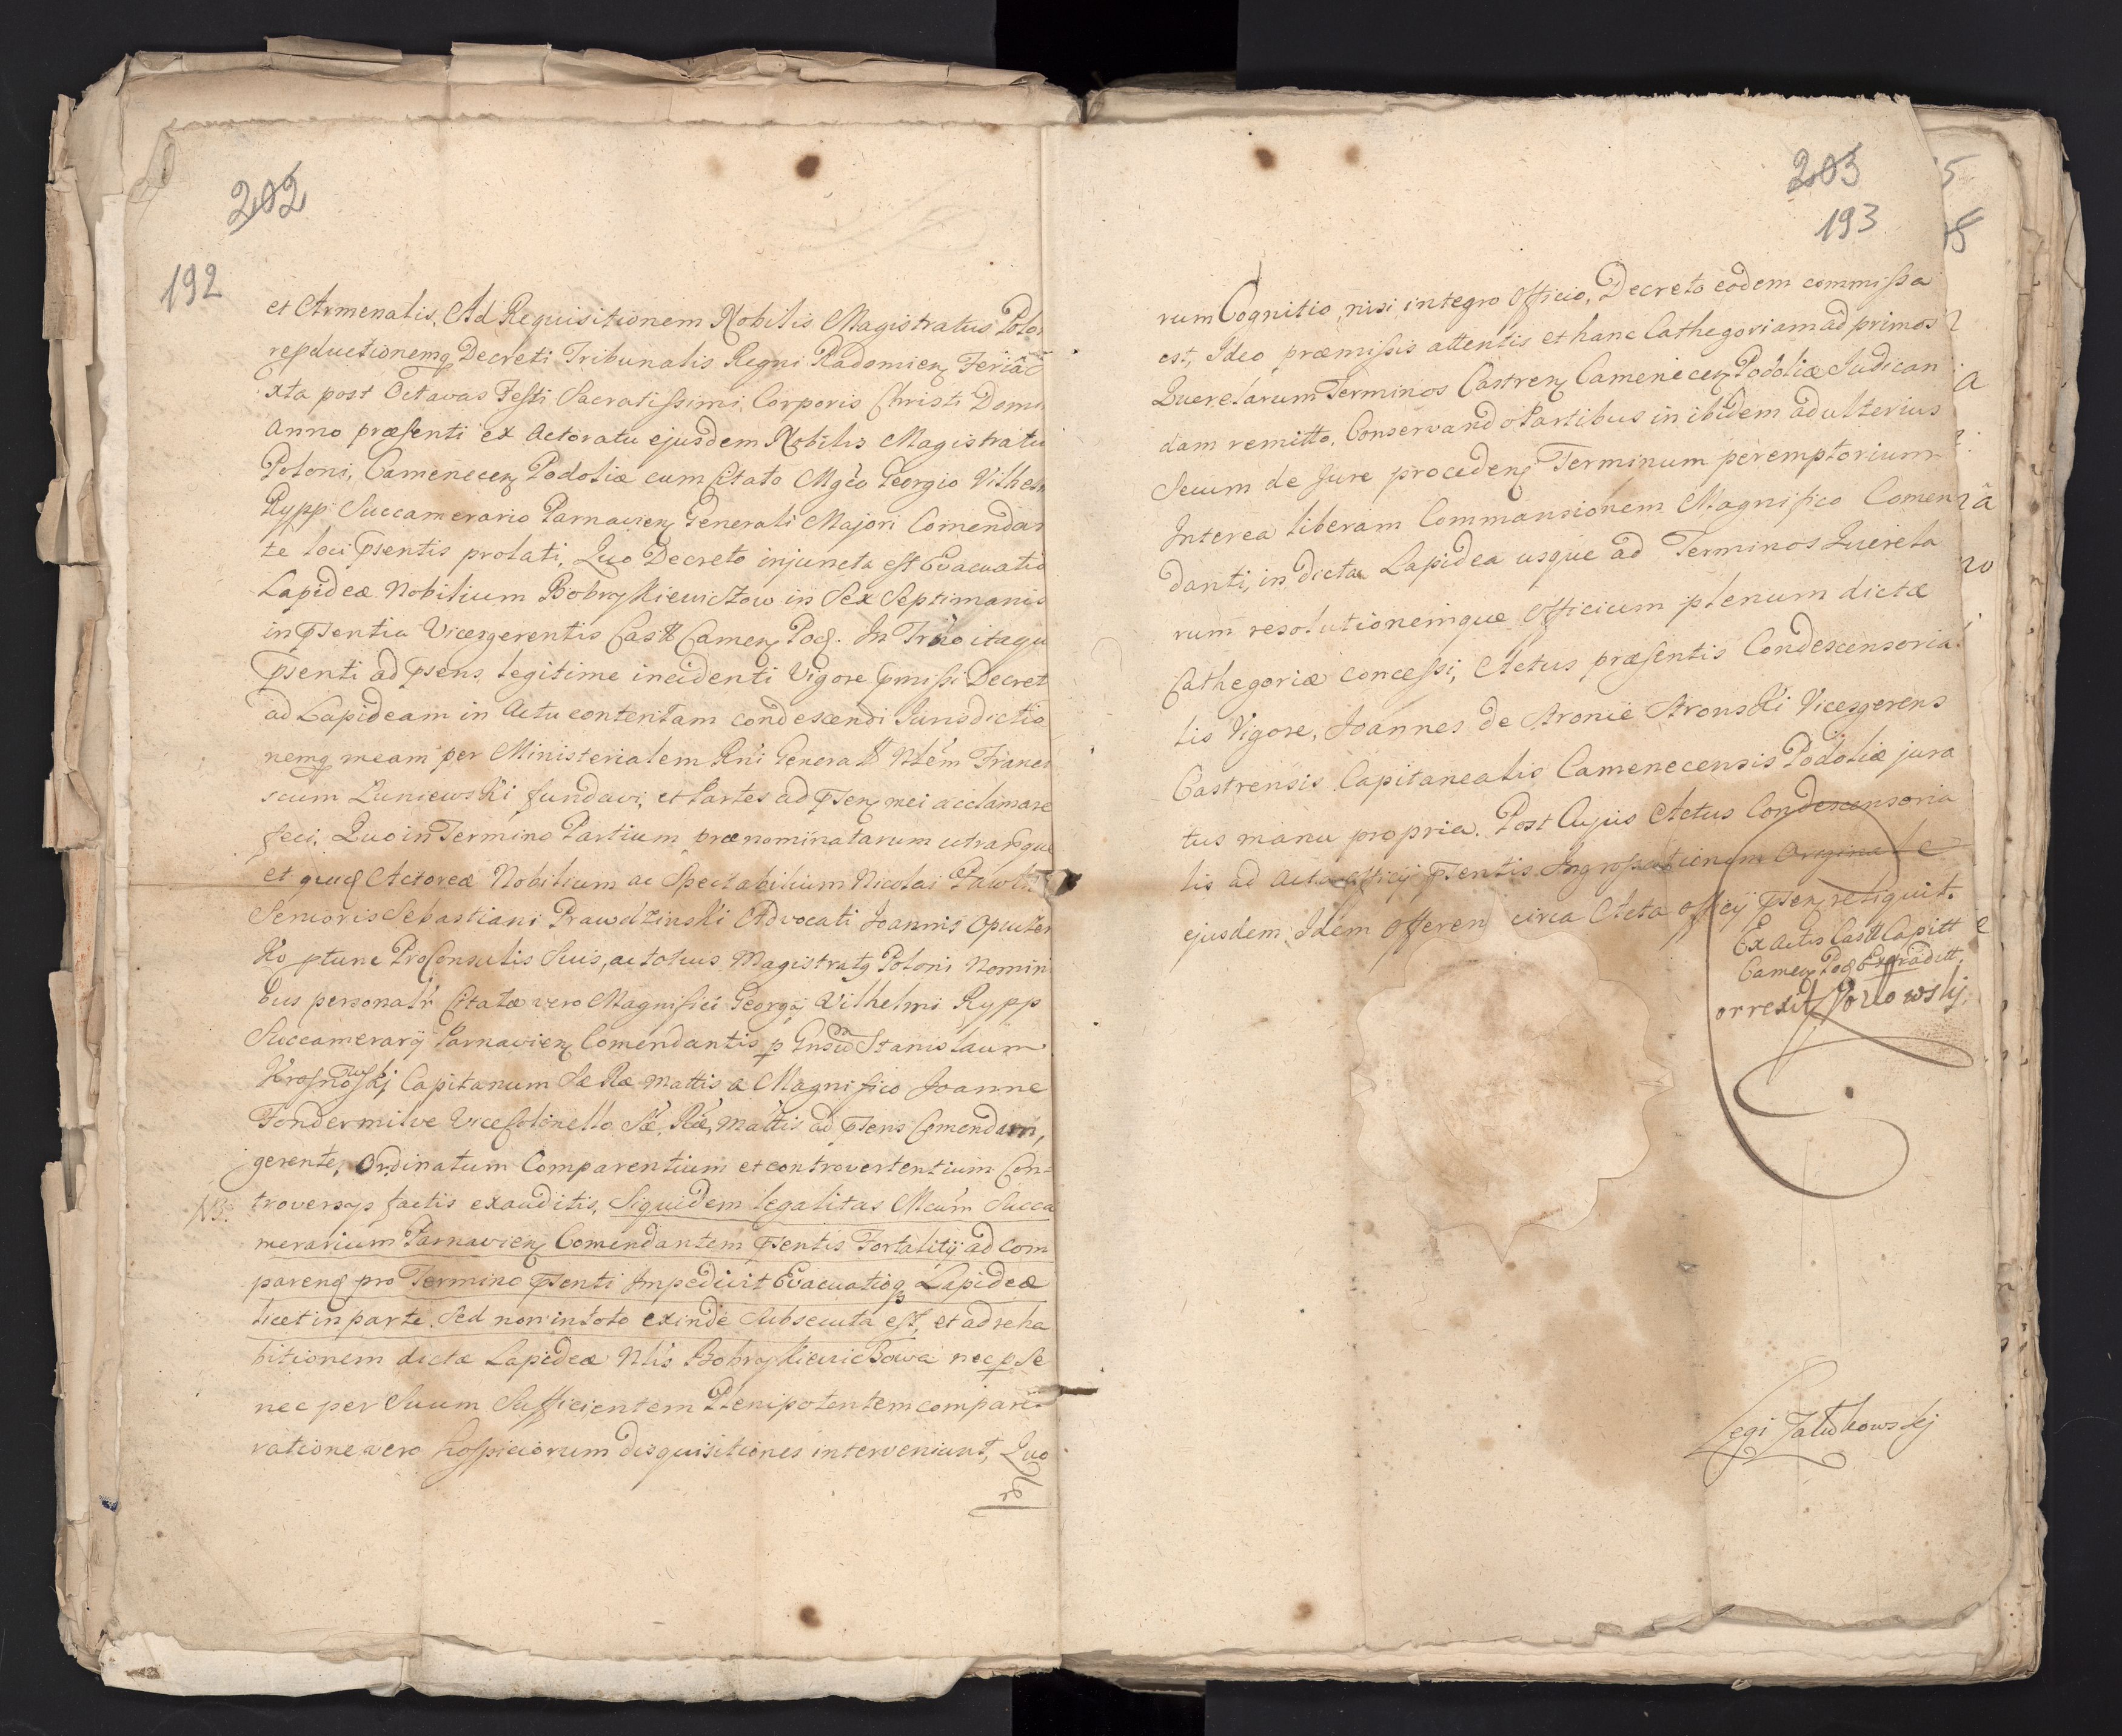 202
192
et Armenalis, Ad Requisitionem Nobilis Magistratus Polo
reproductionemq Decreti Tribunalis Regni Radomien Feria
xta post Octavas Festi Sacratissimi Corporis Christi Domi
Anno præsenti ex Actoratu ejusdem Nobilis Magistratu
Poloni, Camenecen Podoliæ cum Citato Mgco Georgio Vilhelm
Rypp Succamerario Parnavien Generali Majori Comendan
te loci psentis prolati, Quo Decreto injuncta est Evacuatio
Lapideæ Nobilium Bobrykiewiczow in Sex Septimanis
in psentia Vicesgerentis Castr Camen Pod. In Trno itaqu
psenti ad psens legitime incidenti Vigore pmissi Decret
ad Lapideam in Actu contentam condescendi Jurisdictio
nemq meam per Ministerialem Rni Generall Nblem Franci
scum Luniewski fundavi, et Partes ad psen mei acclamare
feci, Quo in Termino Partium prænominatarum utrarque
et quid Actoreæ Nobilium ac Spectabilium Nicolai Pawl
Senioris Sebastiani Prawdzinski Advocati Joannis Opucken
Ko ptunc ProConsulis Suis, ac totius Magistratq Poloni Nomin
bus personalr Citatæ vero Magnifici Georgij Vilhelmi Rypp
Succamerarij Parnavien Comendantis p Gnsum Stanislaum
Krosnowskj Capitanum Sæ Ræ Mattis a Magnifico Joanne
Fondermilve ViceColonello Sæ Ræ Mattis ad psens Comendam,
gerente, Ordinatum Comparentium et controvertentium Con=
NB. troversys factis exauditis, Siquidem legalitas Mcum Succa
merarium Parnavien Comendantem psentis Fortalitij ad Com
parend pro Termino psenti Impedivit Evacuatioq Lapideæ
licet in parte Sed non in toto exinde Subsecuta est, et ad reha
bitionem dictæ Lapideæ Nlis Bobrykiewiczowa nec p Se
nec per Suum Sufficientem Plenipotentem comparuit
ratione vero hospiciorum disquisitiones interveniunt, Quo
203
193
rum Cognitio, nisi integro Officio, Decreto eodem commissa
est, Ideo præmissis attentis et hanc Cathegoriam ad primos
Querelarum Terminos Castren Camenecen Podoliæ Judican
dam remitto, Conservando Partibus in ibidem ad ulterius
Secum de Jure proceden Terminum peremptorium
Interea liberam Commansionem Magnifico Comen
danti, in dicta Lapidea usque ad Terminos Querela
rum resolutionemque Officium plenum dictæ
Cathegoriæ concessi, Actus præsentis Condescensoria
lis Vigore, Joannes de Aronie Aronski Vicesgerens
Castrensis Capitanealis Camenecensis Podoliæ jura
tus manu propria. Post Cujus Actus Condescensoria
lis ad Acta Officij psentis Ingrossationem Originale
ejusdem, Idem Offeren circa Acta Officij psen reliquit.
Ex Actis Castr Capitt
Camen Pod Extraditt.
Legi Jalukowskj